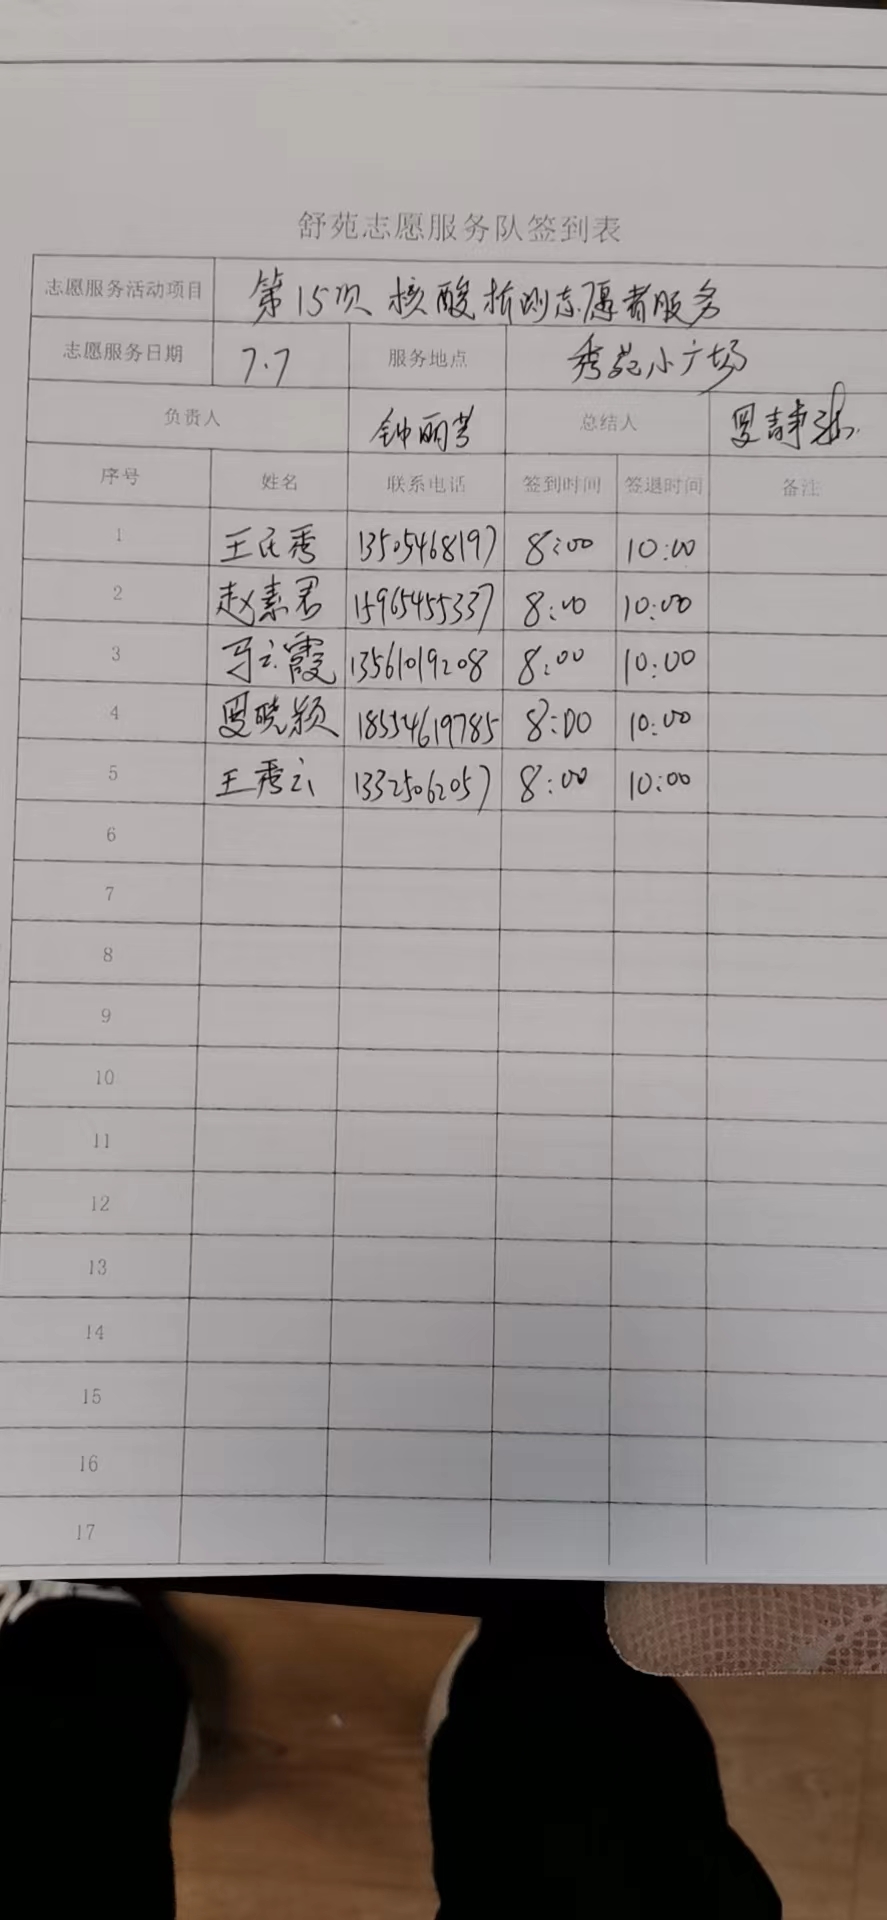 舒苑志愿服务队签到表
志愿服务活动项目 第15次核酸检测志愿者服务
志愿服务日期 7.7 服务地点 秀苑小广场
负责人 钟丽芳 总结人
序号 姓名 联系电话 签到时间 签退时间 备注
1 王民秀 13505468197 8:00 10:00
2 赵素君 15965455337 8:00 10:00
3 马云霞 13561019208 8:00 10:00
4 夏晓颖 18554619785 8:00 10:00
5 王秀云 13325062057 8:00 10:00
6
7
8
9
10
11
12
13
14
15
16
17